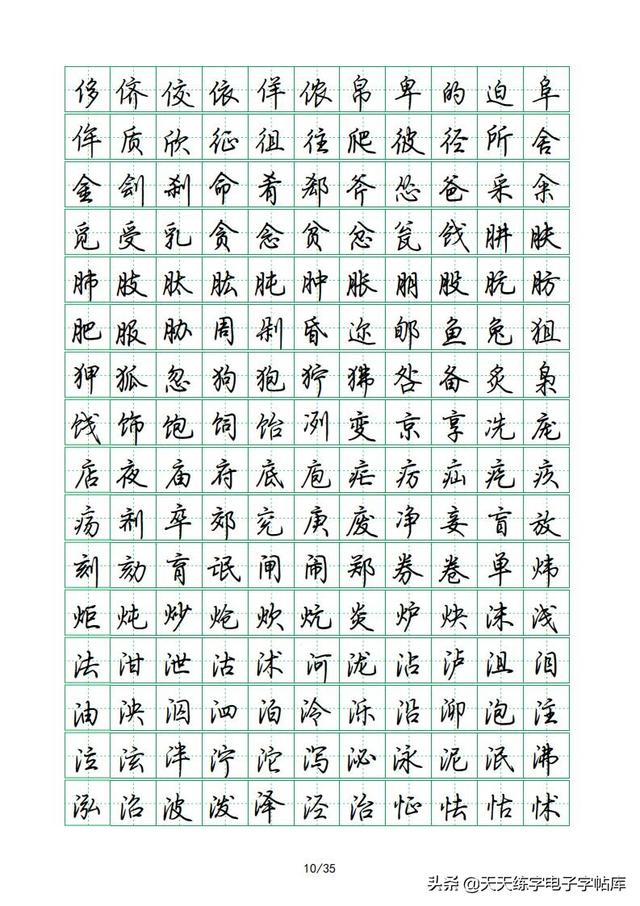 侈侪佼依佯侬帛卑的迫阜
侔质欣征徂往爬彼径所舍
金刽刹命肴郄斧怂爸采籴
觅受乳贪念贫忿瓮戗肼肤
肺肢肽肱肫肿胀朋股肮肪
肥服胁周剁昏迩郇鱼兔狙
狎狐忽狗狍狞狒咎备炙枭
饯饰饱饲饴冽变京享冼庞
店夜庙府底庖疟疠疝疙疚
疡剂卒郊兖庚废净妾盲放
刻劾育氓闸闹郑券卷单炜
炬炖炒炝炊炕炎炉炔沫浅
法泔泄沽沭河泷沾泸沮泪
油泱泅泗泊泠泺沿泖泡注
泣泫泮泞沱泻泌泳泥泯沸
泓沼波泼泽泾治怔怯怙怵
10/35
头条 @天天练字电子字帖库